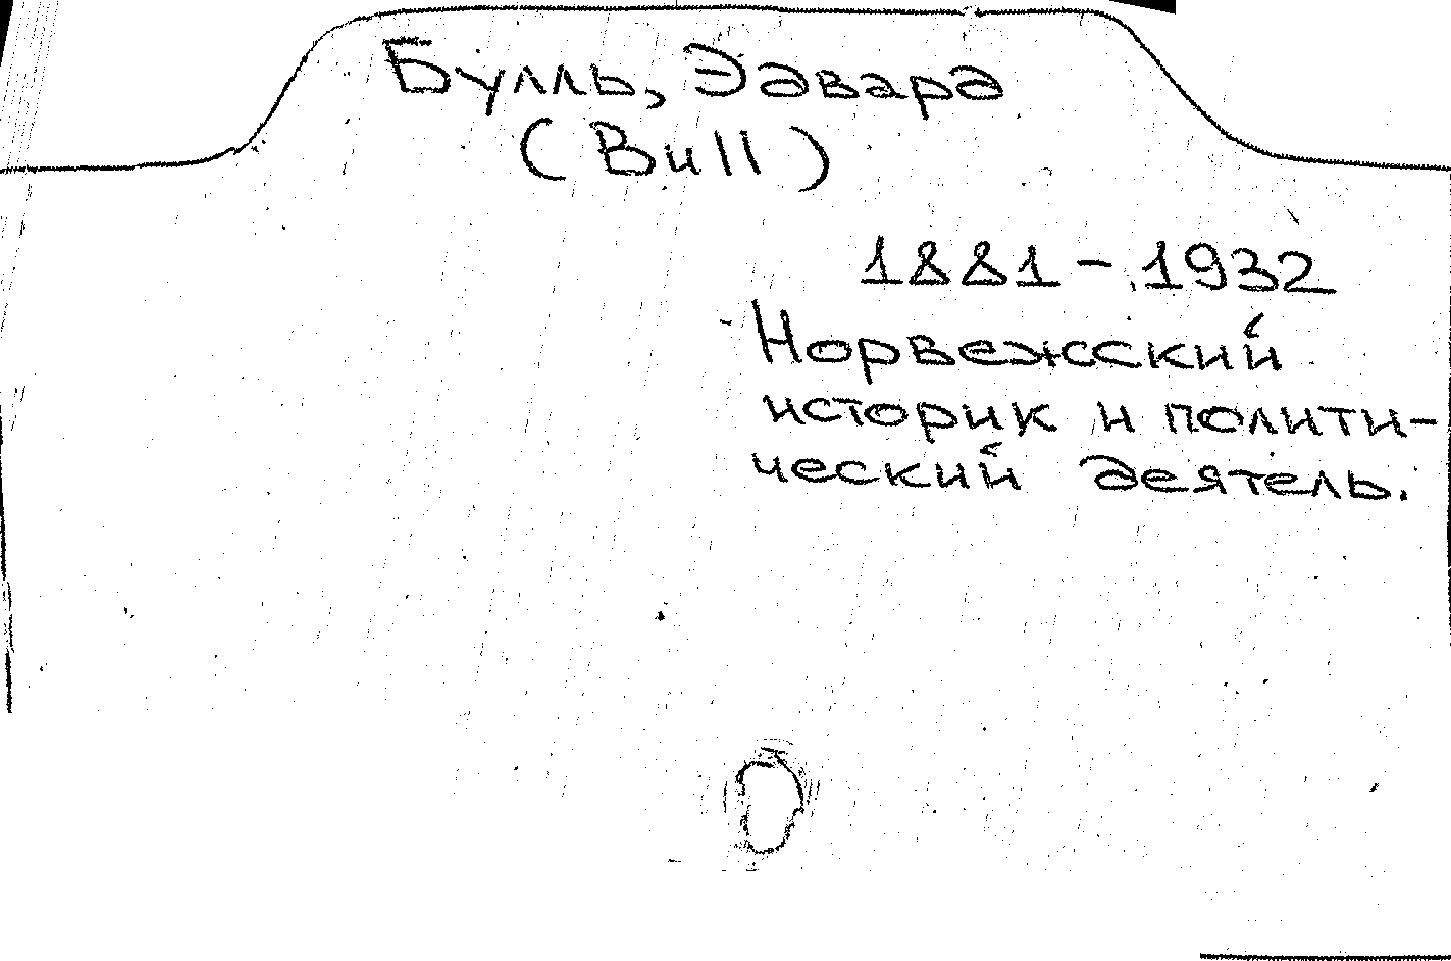 Булль, Эдвард
(Bull)
1881 - 1932
Норвежсский
историк и полити-
ческий деятель.